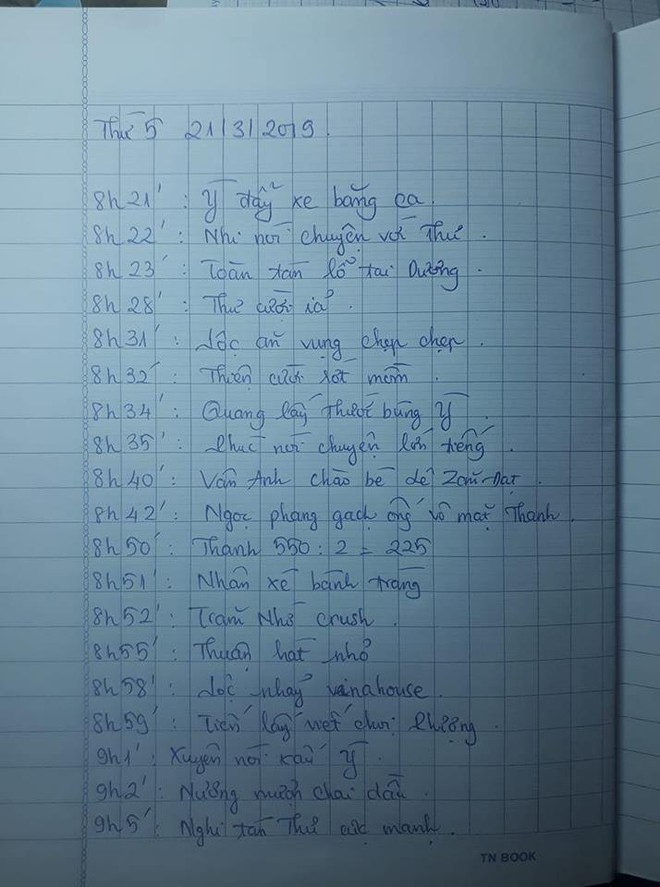 Thứ 5 21/3/2019
8h21' : Ý đẩy xe băng ca.
8h22' : Nhi nói chuyện với Thư.
8h23' : Toàn tán lỗ tai Dương.
8h28' : Thư cười ỉa.
8h31' : Lộc ăn vụng chẹp chẹp.
8h32' : Thiện cười sốt mồm.
8h34' : Quang lấy thước búng Ý.
8h35' : Phúc nói chuyện lớn tiếng.
8h40' : Vân Anh chào bé dế Zom-Đạt.
8h42' : Ngọc phang gạch ống vô mặt Thanh.
8h50' : Thanh 550 : 2 = 225
8h51' : Nhân xé bánh tráng
8h52' : Trâm Nhớ crush.
8h55' : Thuận hát nhỏ
8h58' : Lộc nhảy vinahouse.
8h59' : Tiến lấy viết chửi Phượng.
9h1' : Xuyên nói xấu Ý.
9h2' : Nương mượn chai dầu.
9h5' : Nghi tán Thư cực mạnh.
TN BOOK